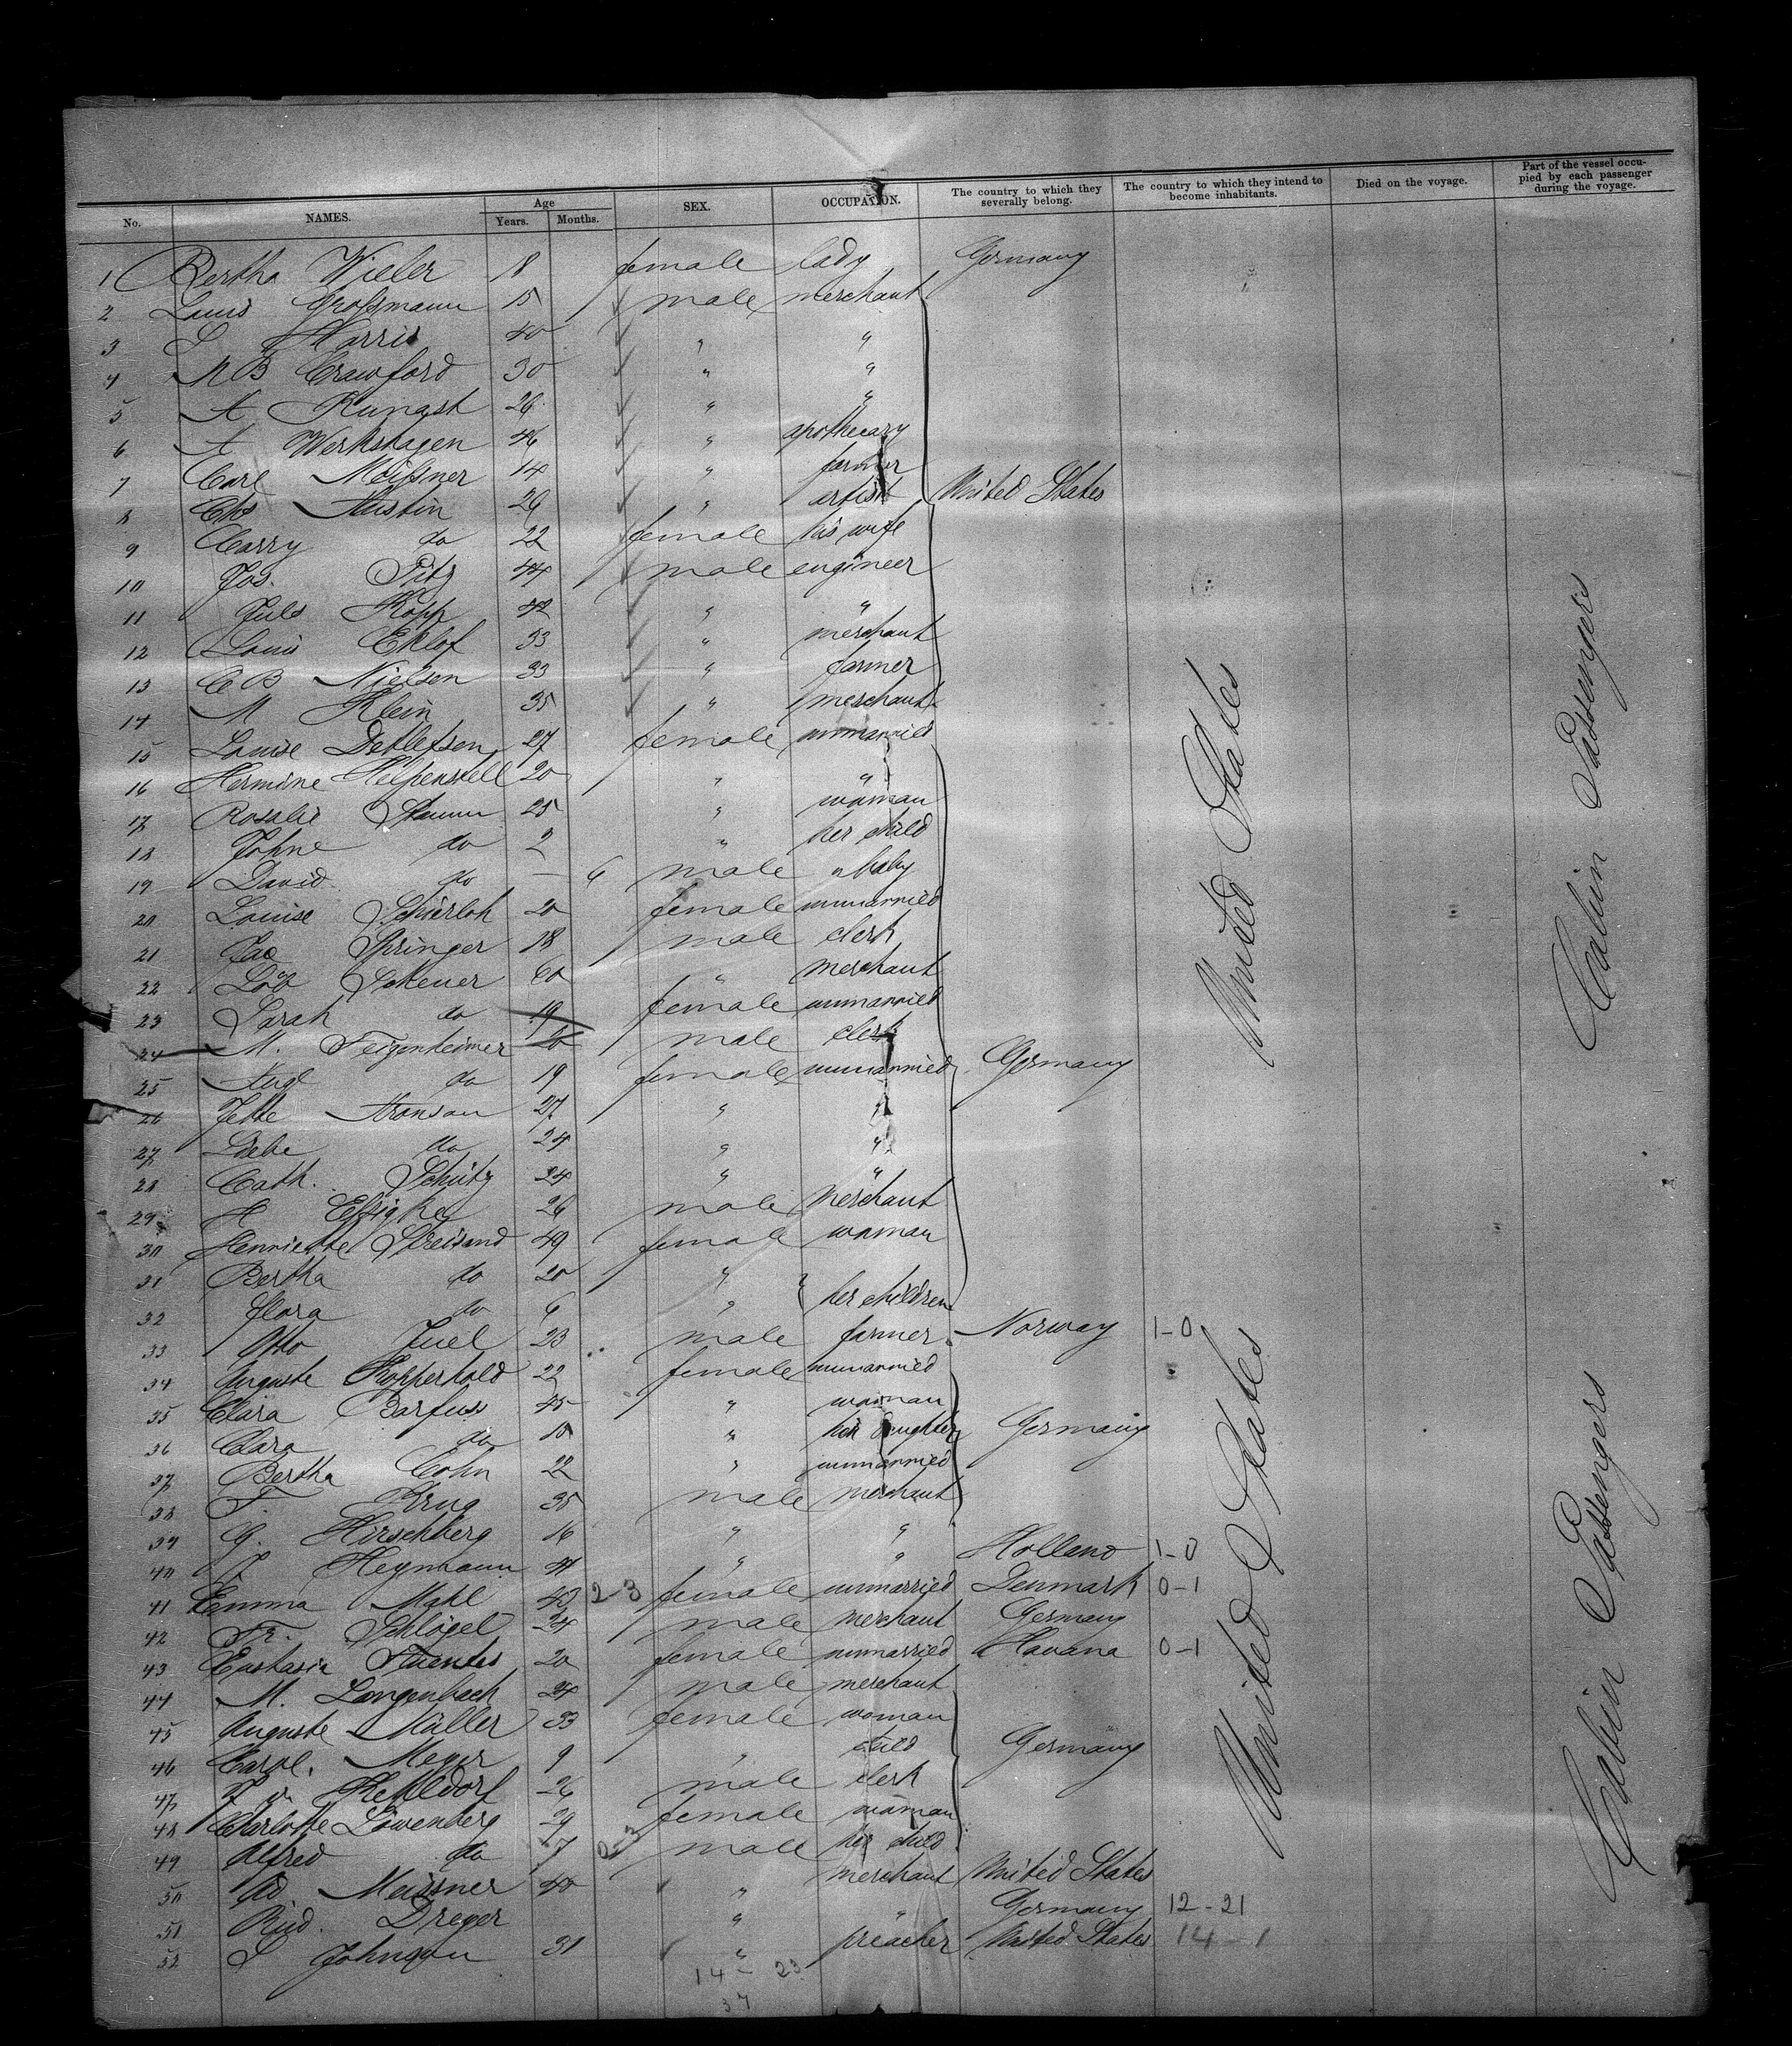 No. NAMES. Age Years. Months. SEX. OCCUPATION. The country to which they severally belong. The country to which they intend to become inhabitants. Died on the voyage. Part of the vessel occupied by each passenger during the voyage.
1 Bertha Wieler 18 female lady Germany
2 Louis Großmann 15 male merchant
3 S Harris 40 " "
4 M B Crawford 30 " "
5 A Kunast 26 " "
6 A Werkshagen 46 " apothecary
7 Carl Meißner 14 " farmer
8 Chs Austin 26 " artist United States
9 Carry do 22 female his wife
10 Jos. Pitz 44 male engineer
11 Juls Kopp 42 " "
12 Louis Eklof 33 " merchant
13 C B Nielsen 33 " farmer
14 M Klein 35 " merchant
15 Louise Detlefsen 27 female unmarried
16 Hermine Helpenstell 20 " "
17 Rosalie 25 " woman
18 Johne do 2 " her child
19 David do — 6 male " baby
20 Louise Schierloh 20 female unmarried
21 Jac Springer 18 male clerk
22 Löb Scheuer 60 " merchant
23 Sarah do 19 female unmarried
24 M. Feigenheimer 20 male clerk
25 Aug do 19 female unmarried Germany
26 Jette Aronsau 27 " "
27 Liebe do 24 " "
28 Cath. Schütz 24 " "
29 H Eßigke 26 male merchant
30 Henriette Streisand 49 female woman
31 Bertha do 20 "
32 Flora do 6 " her children
33 Otto Juel 23 male farmer Norway 1-0
34 Auguste Kopperhold 22 female unmarried
35 Clara Barfuss 45 " woman
36 Clara do 15 " her daughter Germany
37 Bertha Cohn 22 " unmarried
38 F. Krug 35 male merchant
39 G. Hirschberg 16 " "
40 J Heymann 41 " " Holland 1-0
41 Emma Mahl 43 2-3 female unmarried Denmark 0-1
42 Fr. Schlögel 24 male merchant Germany
43 Eustasia Fuentes 20 female unmarried Havana 0-1
44 M. Langenbach 24 male merchant
45 Auguste Müller 33 female woman
46 Carol. Meyer 9 " child Germany
47 F v. Kehldorf 26 male clerk
48 Charlotte Löwenberg 29 female woman
49 Alfred do 7 male her child
50 Ad. Meissner 40 " merchant United States
51 Rud. Dreyer " " Germany 12-21
52 S Johnson 31 " preacher United States 14-1
14-23
37
United States
United States
Cabin Passengers
Cabin Passengers